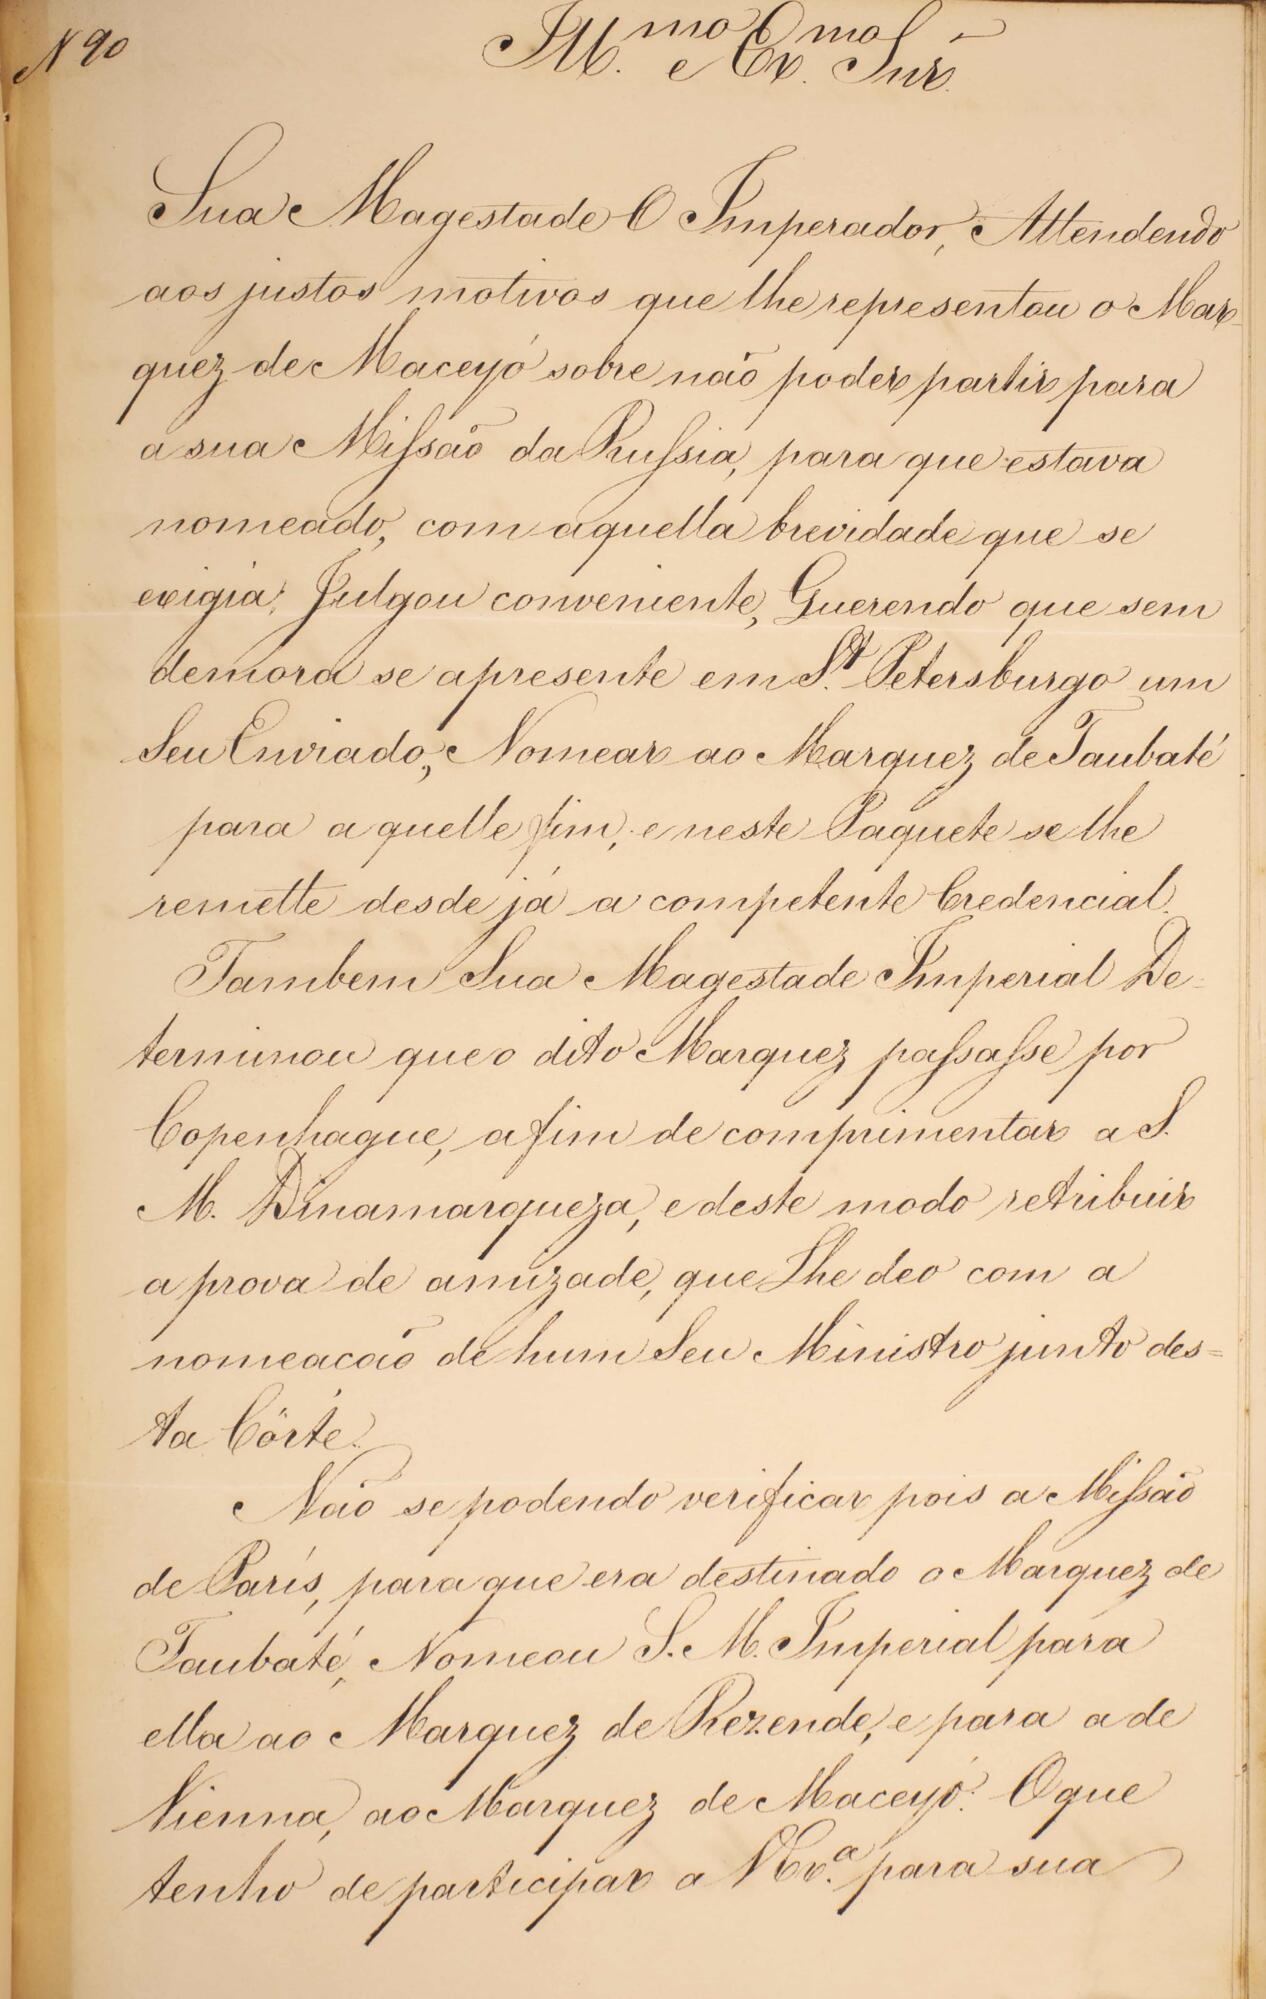 N 90
Ill.mo e Ex.mo Snr.
Sua Magestade O Imperador, Attendendo
aos justos motivos que lhe representou o Mar-
quez de Maceyó sobre não poder partir para
a sua Missão da Russia, para que estava
nomeado, com aquella brevidade que se
exigia; Julgou conveniente, Querendo que sem
demora se apresente em St. Petersburgo um
Seu Enviado, Nomear ao Marquez de Taubaté
para aquelle fim, e neste Paquete se lhe
remette desde já a competente Credencial.
Tambem Sua Magestade Imperial De-
terminou que o dito Marquez passasse por
Copenhague, afim de comprimentar a S.
M. Dinamarqueza, e deste modo retribuir
a prova de amizade, que Lhe deo com a
nomeacão de hum Seu Ministro junto des=
ta Côrte.
Não se podendo verificar pois a Missão
de París, para que era destinado o Marquez de
Taubaté, Nomeou S. M. Imperial para
ella ao Marquez de Rezende, e para a de
Vienna, ao Marquez de Maceyó. O que
tenho de participar a V Ex.a para sua